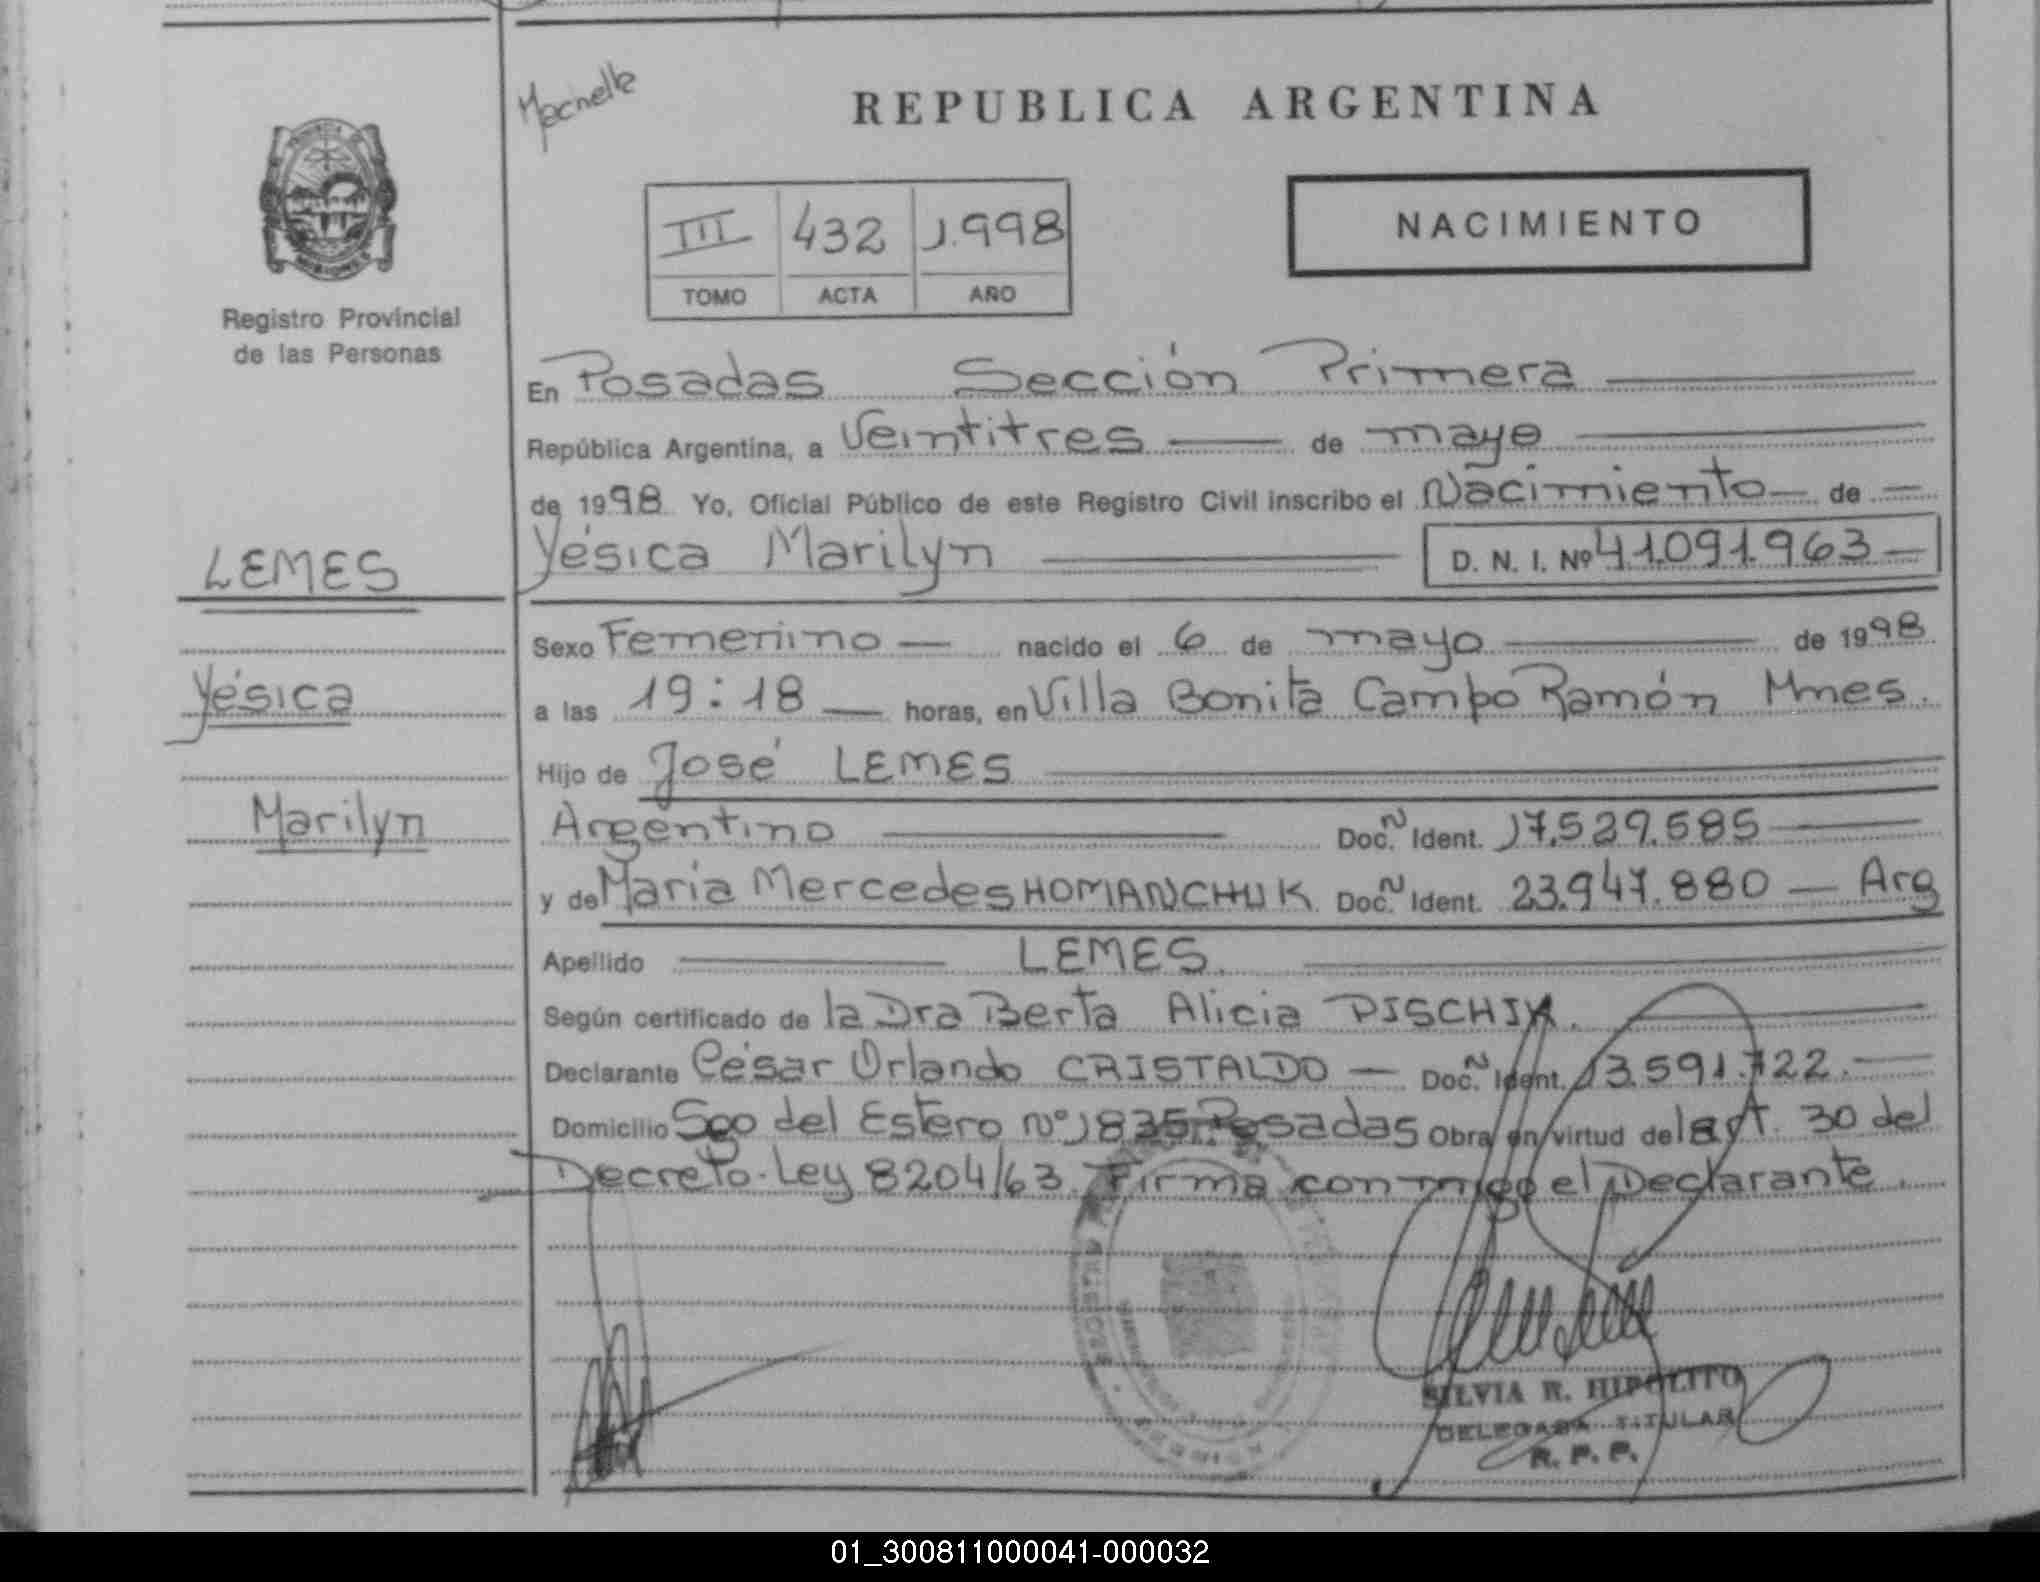 REPUBLICA ARGENTINA
NACIMIENTO
III 432 1.998
TOMO ACTA AÑO
Registro Provincial
de las Personas
En Posadas Sección Primera
República Argentina, a Veintitres de mayo
de 1998. Yo, Oficial Público de este Registro Civil inscribo el Nacimiento de
LEMES
Yésica Marilyn D. N. I. Nº 41.091.963
Sexo Femenino nacido el 6 de mayo de 1998
Yésica
a las 19:18 horas, en Villa Bonita Campo Ramón Mnes.
Hijo de José LEMES
Marilyn
Argentino Doc. Ident. 17.529.585
y de María Mercedes HOMANCHUK Doc. Ident. 23.947.880 Arg
Apellido LEMES
Según certificado de la Dra Berta Alicia
Declarante César Orlando CRISTALDO Doc. Ident. 13.591.722.
Domicilio Sgo del Estero Nº 1835 Posadas Obra en virtud del art. 30 del
Decreto-Ley 8204/63. Firma conmigo el Declarante.
SILVIA R. HIPOLITO
DELEGADA TITULAR
R. P. P.
01_300811000041-000032